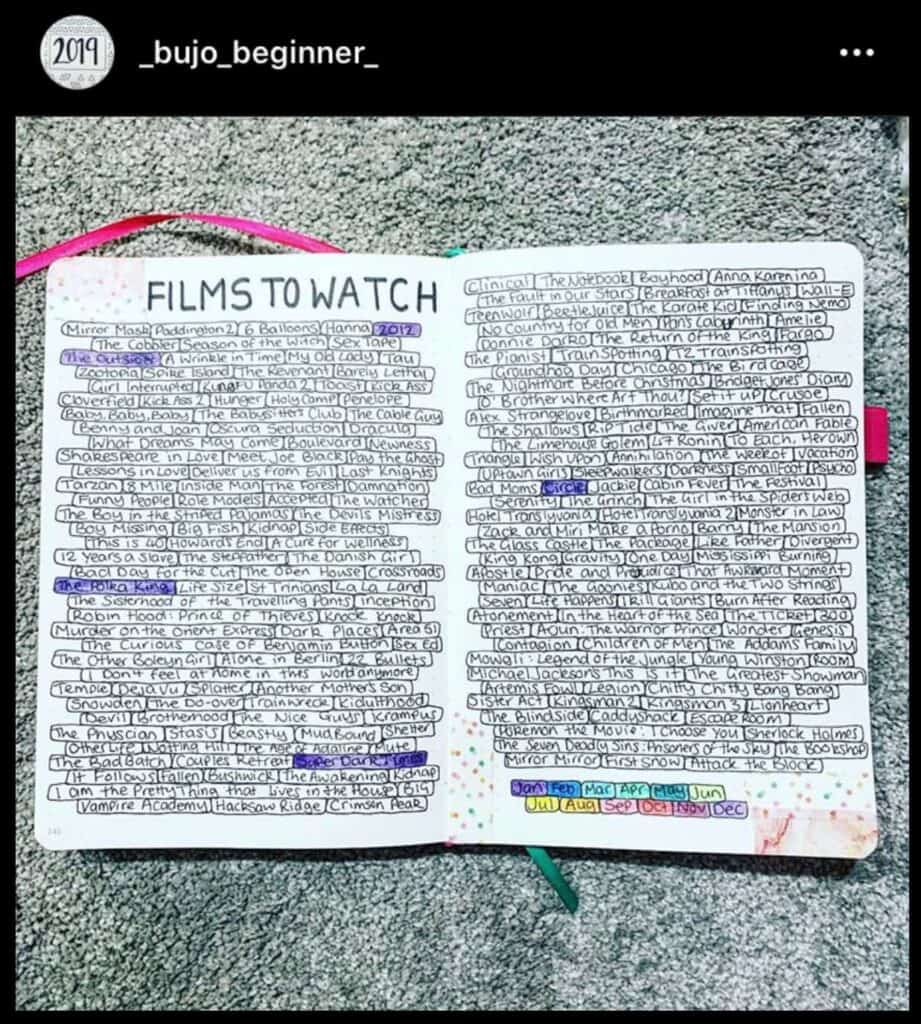 2019
_bujo_beginner_
FILMS TO WATCH
Mirror Mask Paddington 2 6 Balloons Hanna 2012
The Cobbler Season of the Witch Sex Tape
The Outsider A Wrinkle in Time My Old Lady Tau
Zootopia Spike Island The Revenant Barely Lethal
Girl Interrupted Kung Fu Panda 2 Toast Kick Ass
Cloverfield Kick Ass 2 Hunger Holy Camp Penelope
Baby, Baby, Baby The Babysitters Club The Cable Guy
Benny and Joan Oscura Seduction Dracula
What Dreams May Come Boulevard Newness
Shakespeare in Love Meet Joe Black Pay the Ghost
Lessons in Love Deliver us from Evil Last Knights
Tarzan 8 Mile Inside Man The Forest Damnation
Funny People Role Models Accepted The Watcher
The Boy in the Striped Pajamas The Devils Mistress
Boy Missing Big Fish Kidnap Side Effects
This is 40 Howard's End A Cure for Wellness
12 Years a Slave The Stepfather The Danish Girl
Bad Day for the Cut The Open House Crossroads
The Polka King Life Size St Trinians La La Land
The Sisterhood of the Travelling Pants Inception
Robin Hood: Prince of Thieves Knock Knock
Murder on the Orient Express Dark Places Area 51
The Curious Case of Benjamin Button Sex Ed
The Other Boleyn Girl Alone in Berlin 22 Bullets
I Don't feel at home in this world anymore
Temple Deja Vu Splatter Another Mother's Son
Snowden The Do-over Trainwreck Kidulthood
Devil Brotherhood The Nice Guys Krampus
The Physician Stasis Beastly Mudbound Shelter
Other Life Notting Hill The Age of Adaline Mute
The Bad Batch Couples Retreat Super Dark Times
It Follows Fallen Bushwick The Awakening Kidnap
I am the Pretty Thing that lives in the House Big
Vampire Academy Hacksaw Ridge Crimson Peak
Clinical The Notebook Boyhood Anna Karenina
The Fault in Our Stars Breakfast at Tiffanys Wall-E
Teen Wolf Beetlejuice The Karate Kid Finding Nemo
No Country for Old Men Pans Labyrinth Amelie
Donnie Darko The Return of the King Fargo
The Pianist Train Spotting T2 Trainspotting
Groundhog Day Chicago The Birdcage
The Nightmare Before Christmas Bridget Jones' Diary
O' Brother Where Art Thou? Set it up Crusoe
Alex Strangelove Birthmarked Imagine That Fallen
The Shallows RipTide The Giver American Fable
The Limehouse Golem 47 Ronin To Each, Her own
Triangle Wish Upon Annihilation The Week of Vacation
Uptown Girls Sleepwalkers Darkness Smallfoot Psycho
Bad Moms Circle Jackie Cabin Fever The Festival
Serenity The Grinch The Girl in the Spiders Web
Hotel Translyvania Hotel Translyvania 2 Monster in Law
Zack and Miri Make a Porno Barry The Mansion
The Glass Castle The Package Like Father Divergent
King Kong Gravity One Day Mississippi Burning
Apostle Pride and Prejudice That Awkward Moment
Maniac The Goonies Kubo and the Two Strings
Seven Life Happens I Kill Giants Burn After Reading
Atonement In the Heart of the Sea The Ticket 300
Priest Arjun: The Warrior Prince Wonder Genesis
Contagion Children of Men The Addams Family
Mowgli: Legend of the Jungle Young Winston Room
Michael Jacksons This Is it The Greatest Showman
Artemis Fowl Legion Chitty Chitty Bang Bang
Sister Act Kingsman 2 Kingsman 3 Lionheart
The Blindside Caddyshack Escape Room
Pokemon the Movie: I Choose You Sherlock Holmes
The Seven Deadly Sins: Prisoners of the Sky The Bookshop
Mirror Mirror First Snow Attack the Block
Jan Feb Mar Apr May Jun
Jul Aug Sep Oct Nov Dec